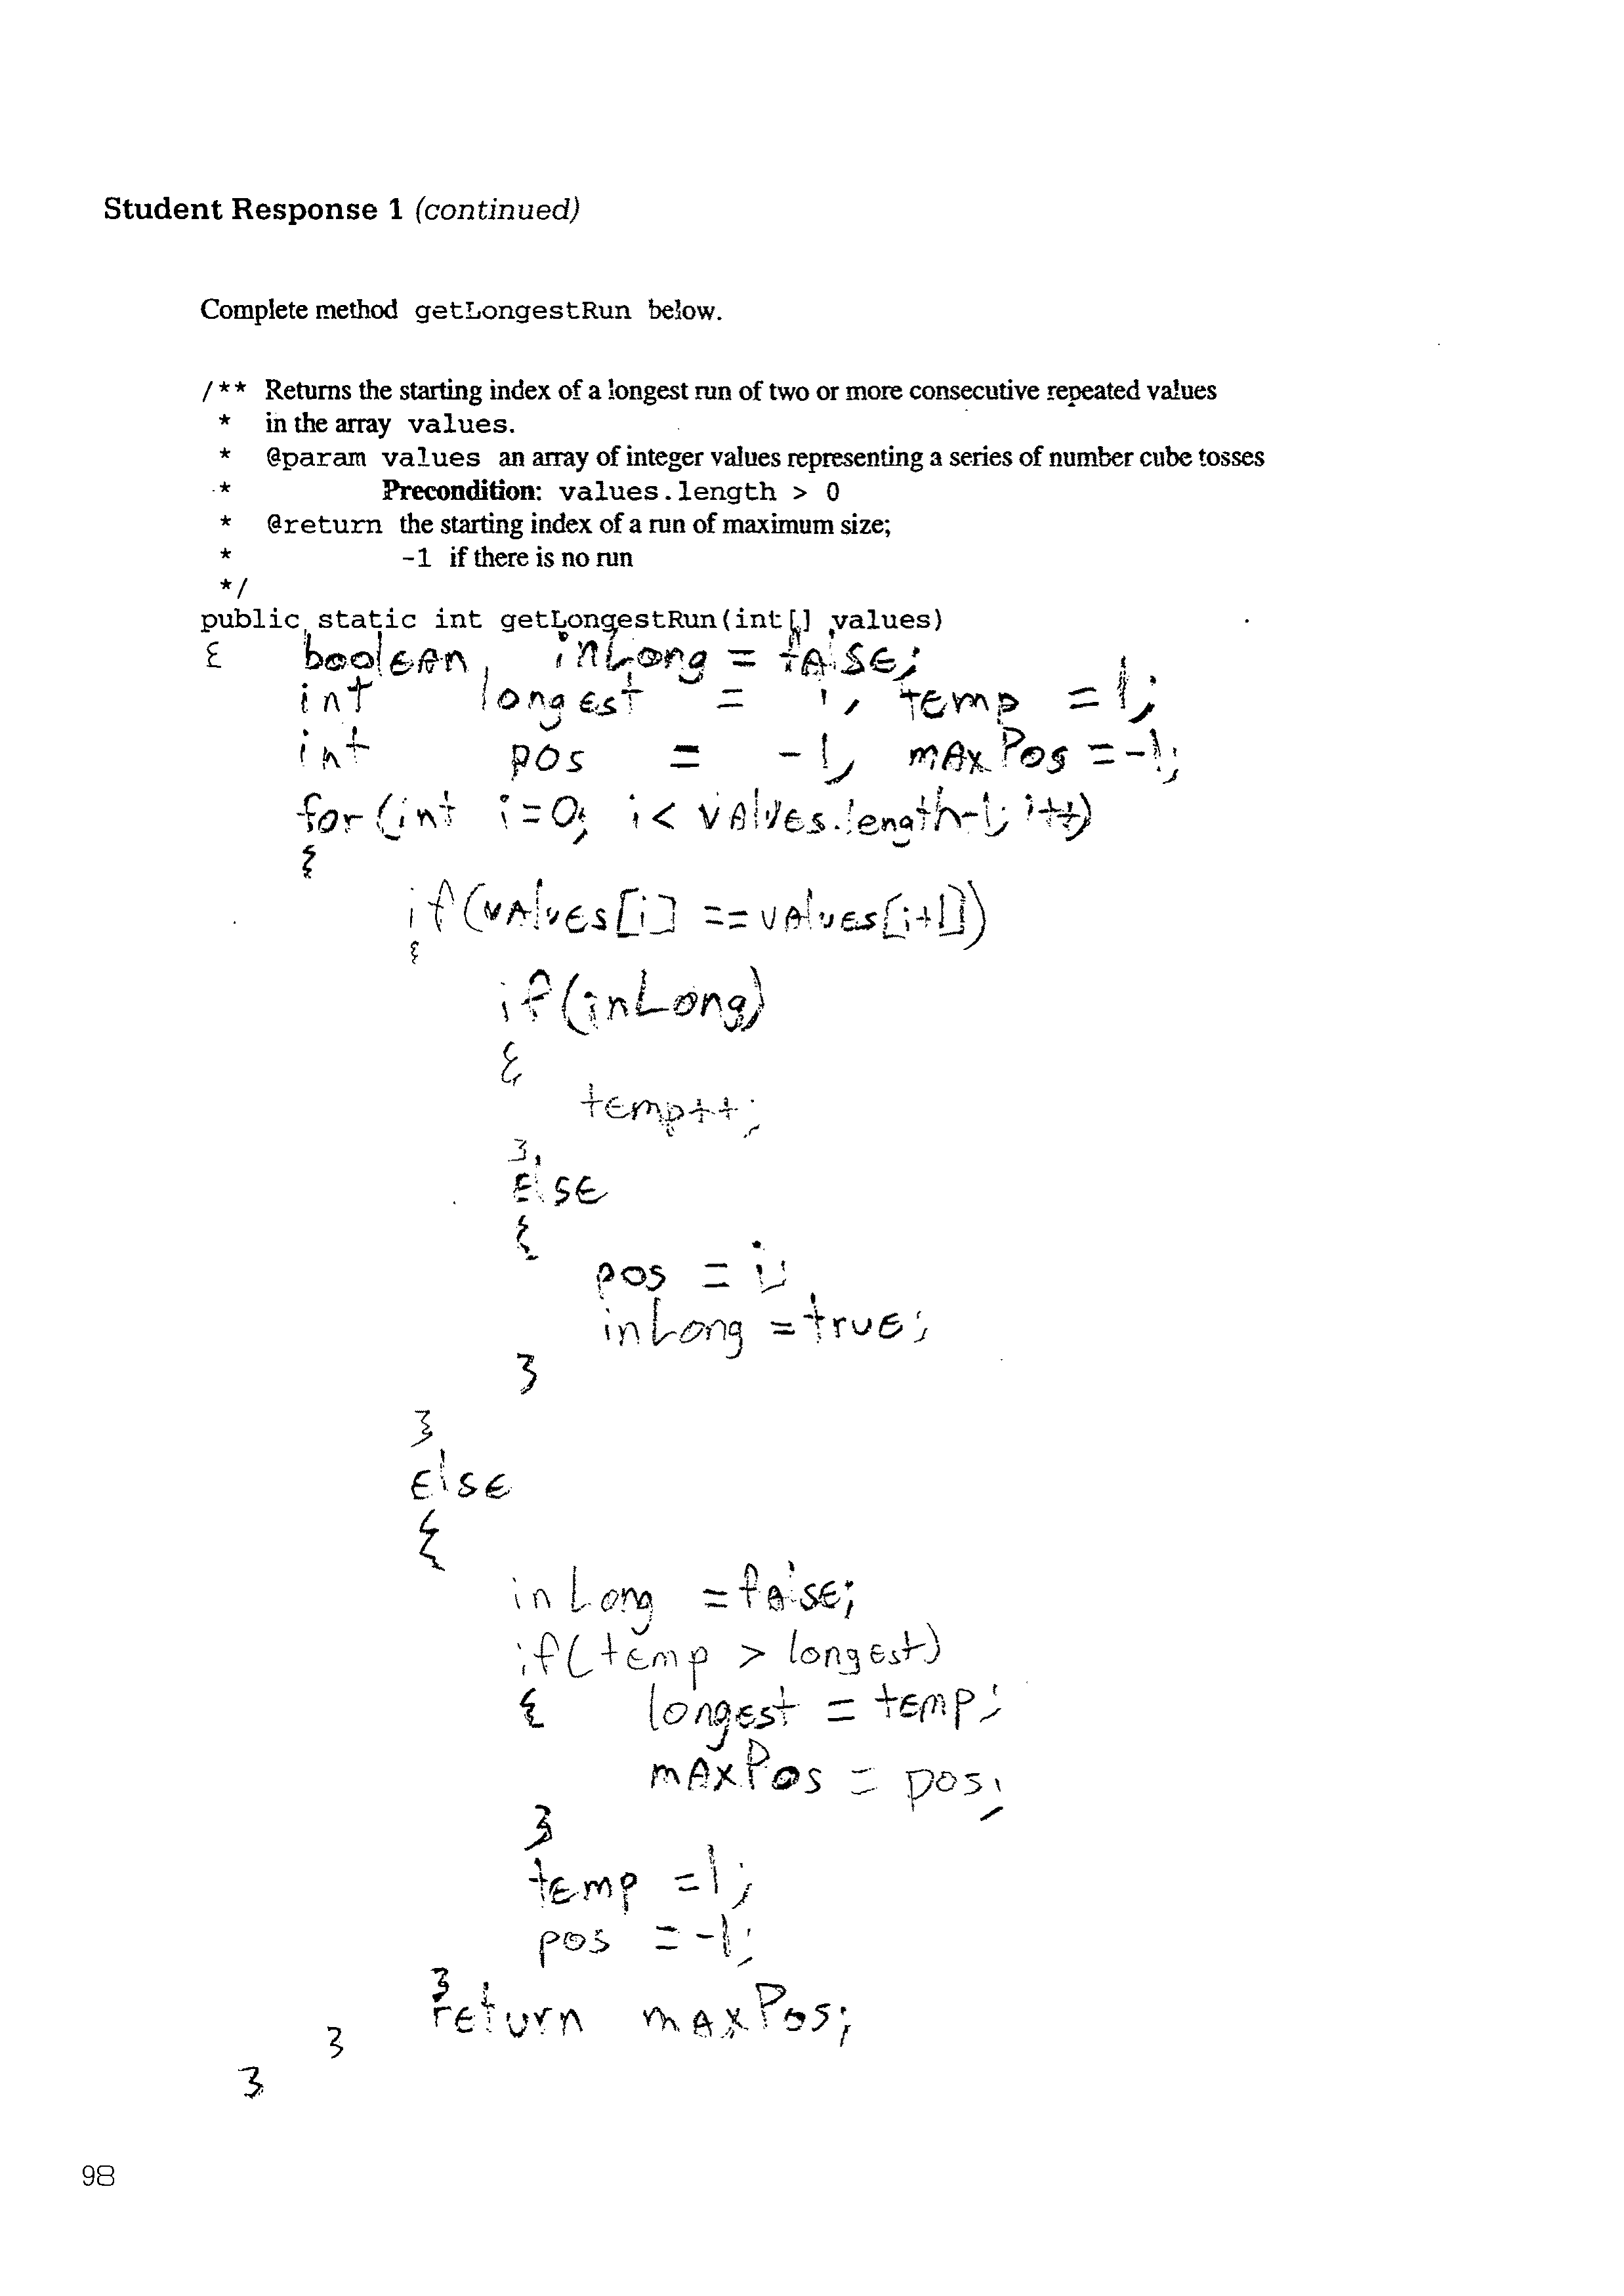 Student Response 1 (continued)
Complete method getLongestRun below.
/** Returns the starting index of a longest run of two or more consecutive repeated values
* in the array values.
* @param values an array of integer values representing a series of number cube tosses
* Precondition: values.length > 0
* @return the starting index of a run of maximum size;
* -1 if there is no run
*/
public static int getLongestRun(int[] values)
{ boolean inLong = false;
int longest = 1, temp = 1;
int pos = -1, maxPos = -1;
for (int i=0; i < values.length-1; i++)
{
if (values[i] == values[i+1])
{
if (inLong)
{
temp++;
}
else
{
pos = i;
inLong = true;
}
}
else
{
inLong = false;
if (temp > longest)
{ longest = temp;
maxPos = pos;
}
temp = 1;
pos = -1;
}
return maxPos;
}
}
98